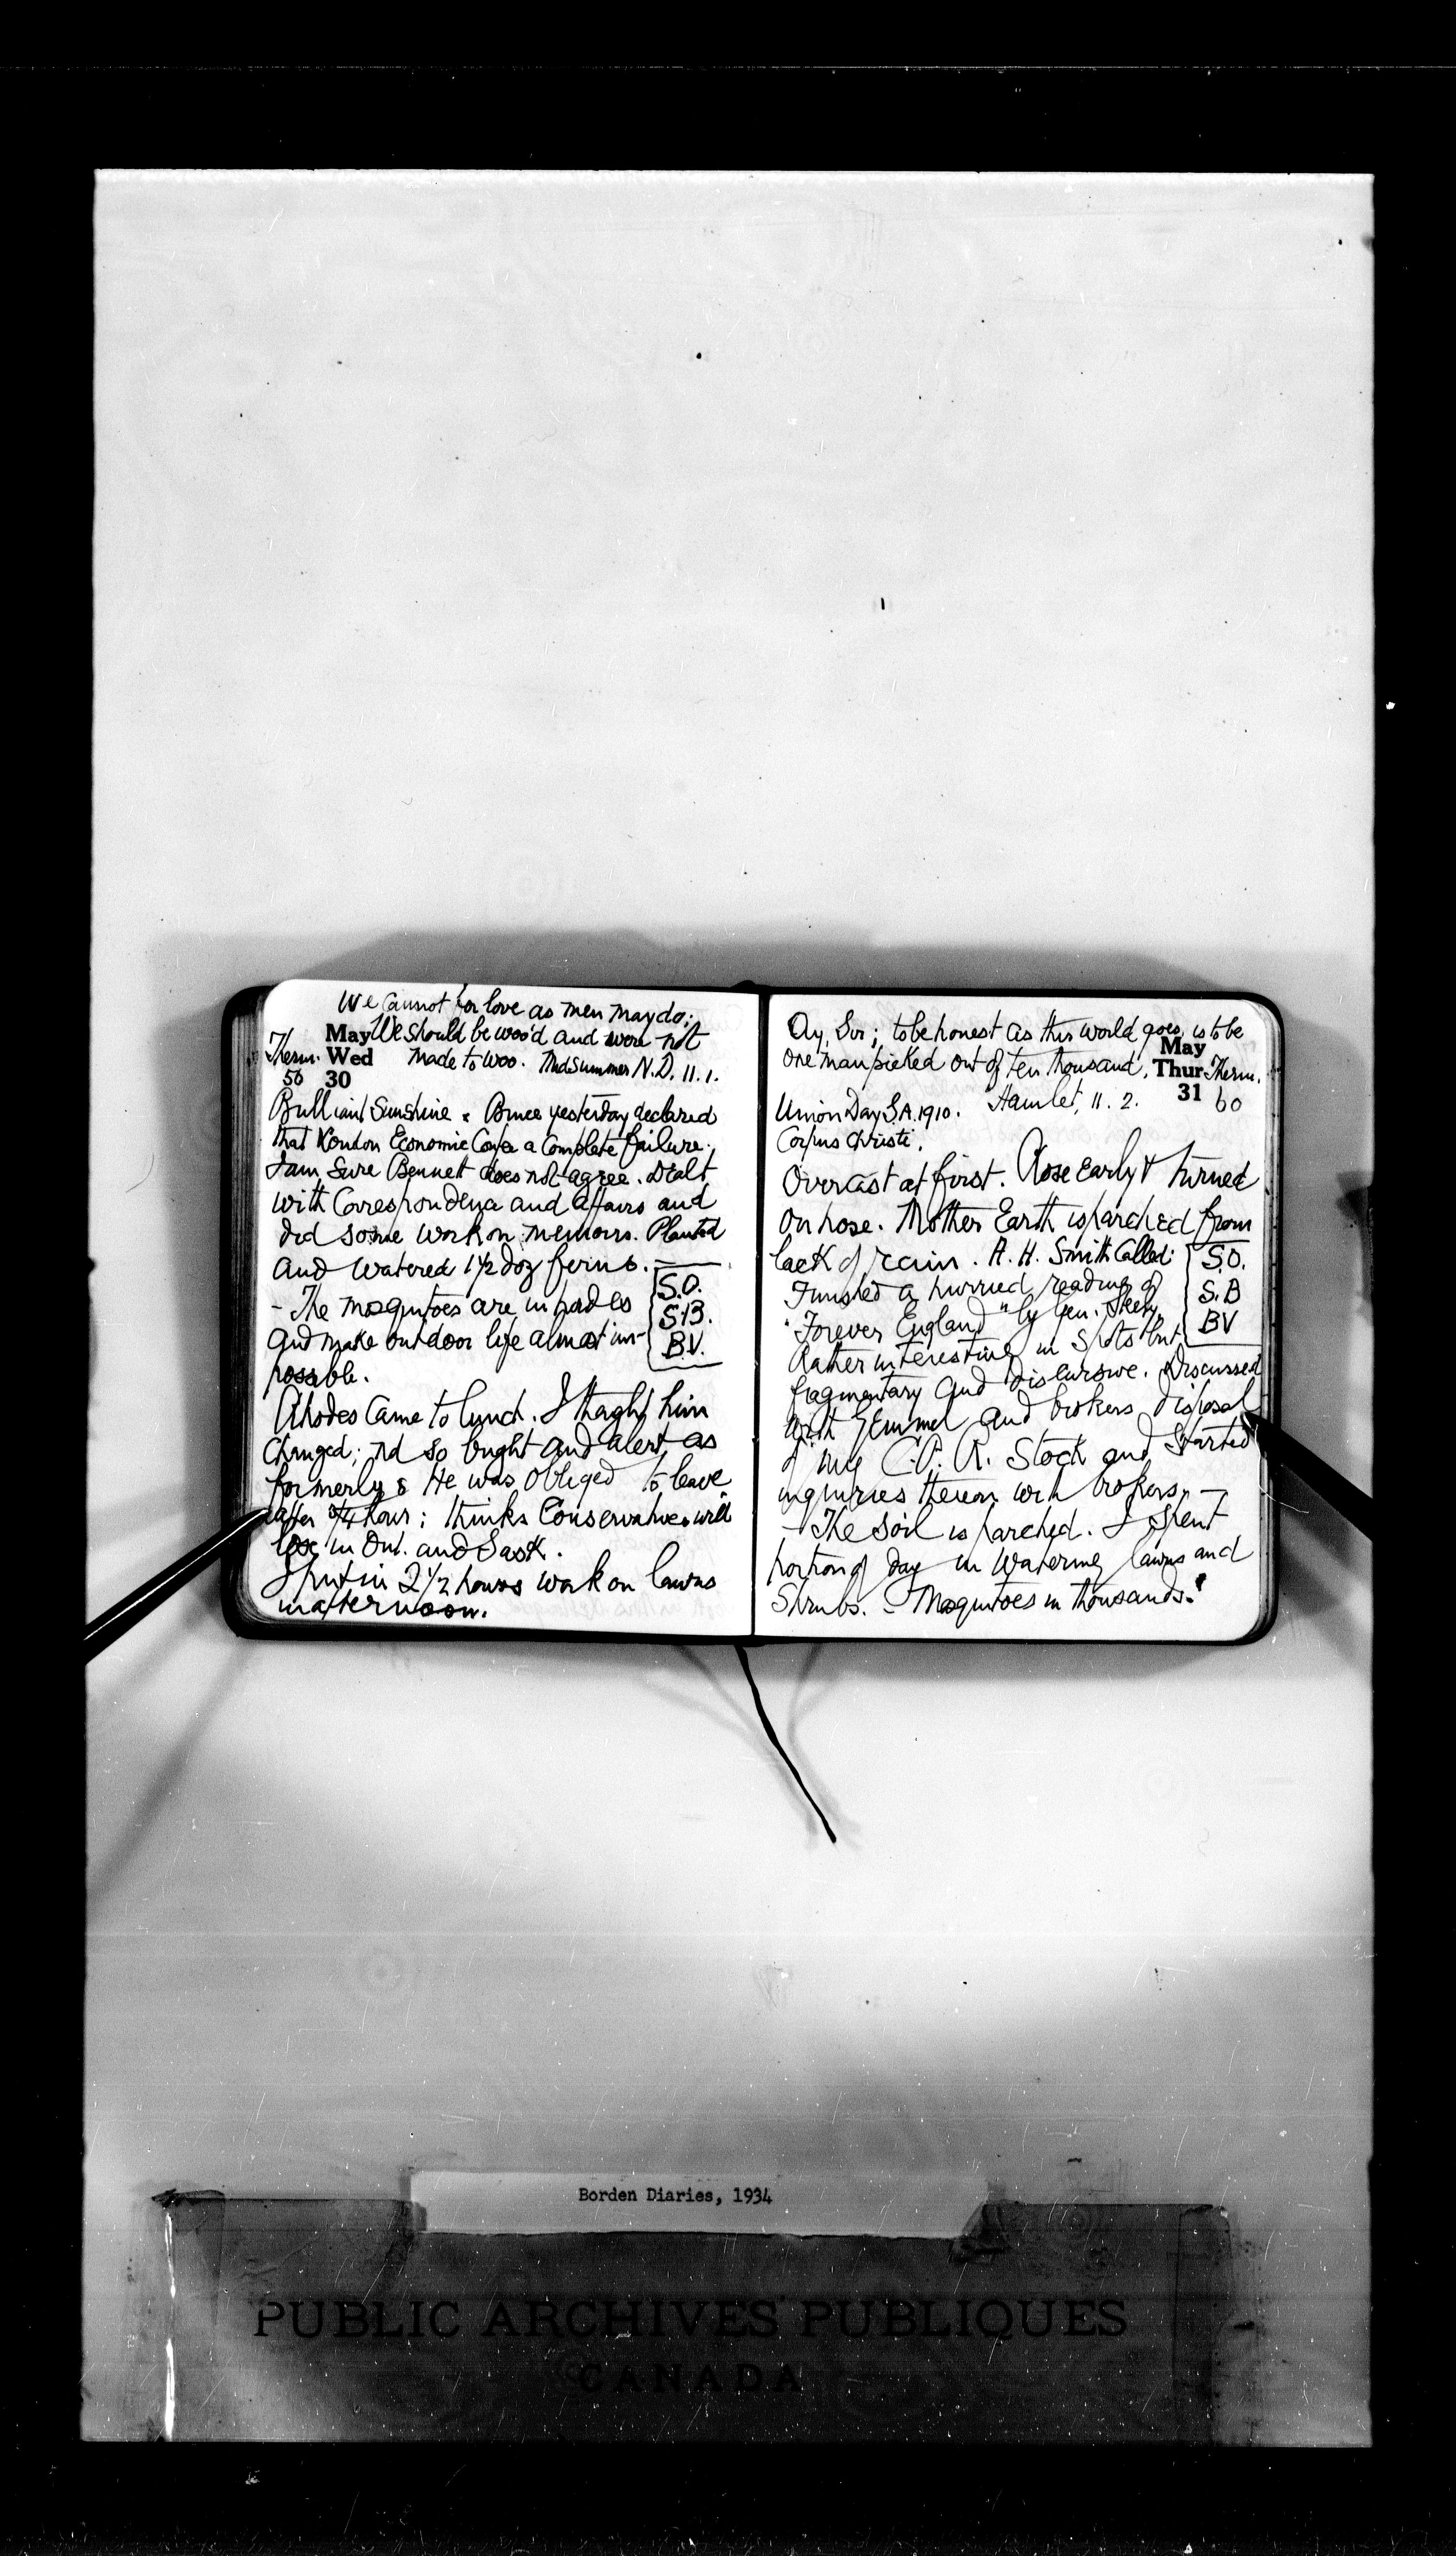 We cannot for love as men may do;
May We should be woo'd and were not
Therm. Wed made to woo. MidSummer N.D. 11.1.
56 30
Brilliant Sunshine. Bruce yesterday declared
that London Economic Confce a Complete failure;
I am sure Bennett does not agree. Dealt
with Correspondence and affairs and
did some work on memoirs. Planted
and watered 1 1/2 doz ferns.
- The mosquitoes are in hordes
and make outdoor life almost im-
possible.
S.O.
S.B.
B.V.
Rhodes came to lunch. I thought him
changed; not so bright and alert as
formerly. He was obliged to leave
after 3/4 hour; thinks Conservatives will
lose in Ont. and Sask.
I put in 2 1/2 hours work on lawns
in afternoon.
Ay, Sir; to be honest as this world goes, is to be
one man picked out of ten thousand.
Hamlet, 11. 2.
May
Thur Therm.
31 60
Union Day S.A. 1910.
Corpus Christi.
Overcast at first. Rose early & turned
on hose. Mother Earth is parched from
lack of rain. A. H. Smith called:
Finished a hurried reading of
"Forever England" by Gen. Seely.
Rather interesting in spots but
fragmentary and discursive. Discussed
with Gemmel and brokers disposal
of my C.P.R. Stock and started
inquiries thereon with brokers. -
S.O.
S.B
BV
- The soil is parched. I spent
portion of day in watering lawns and
Shrubs. - Mosquitoes in thousands!
Borden Diaries, 1934
PUBLIC ARCHIVES PUBLIQUES
CANADA